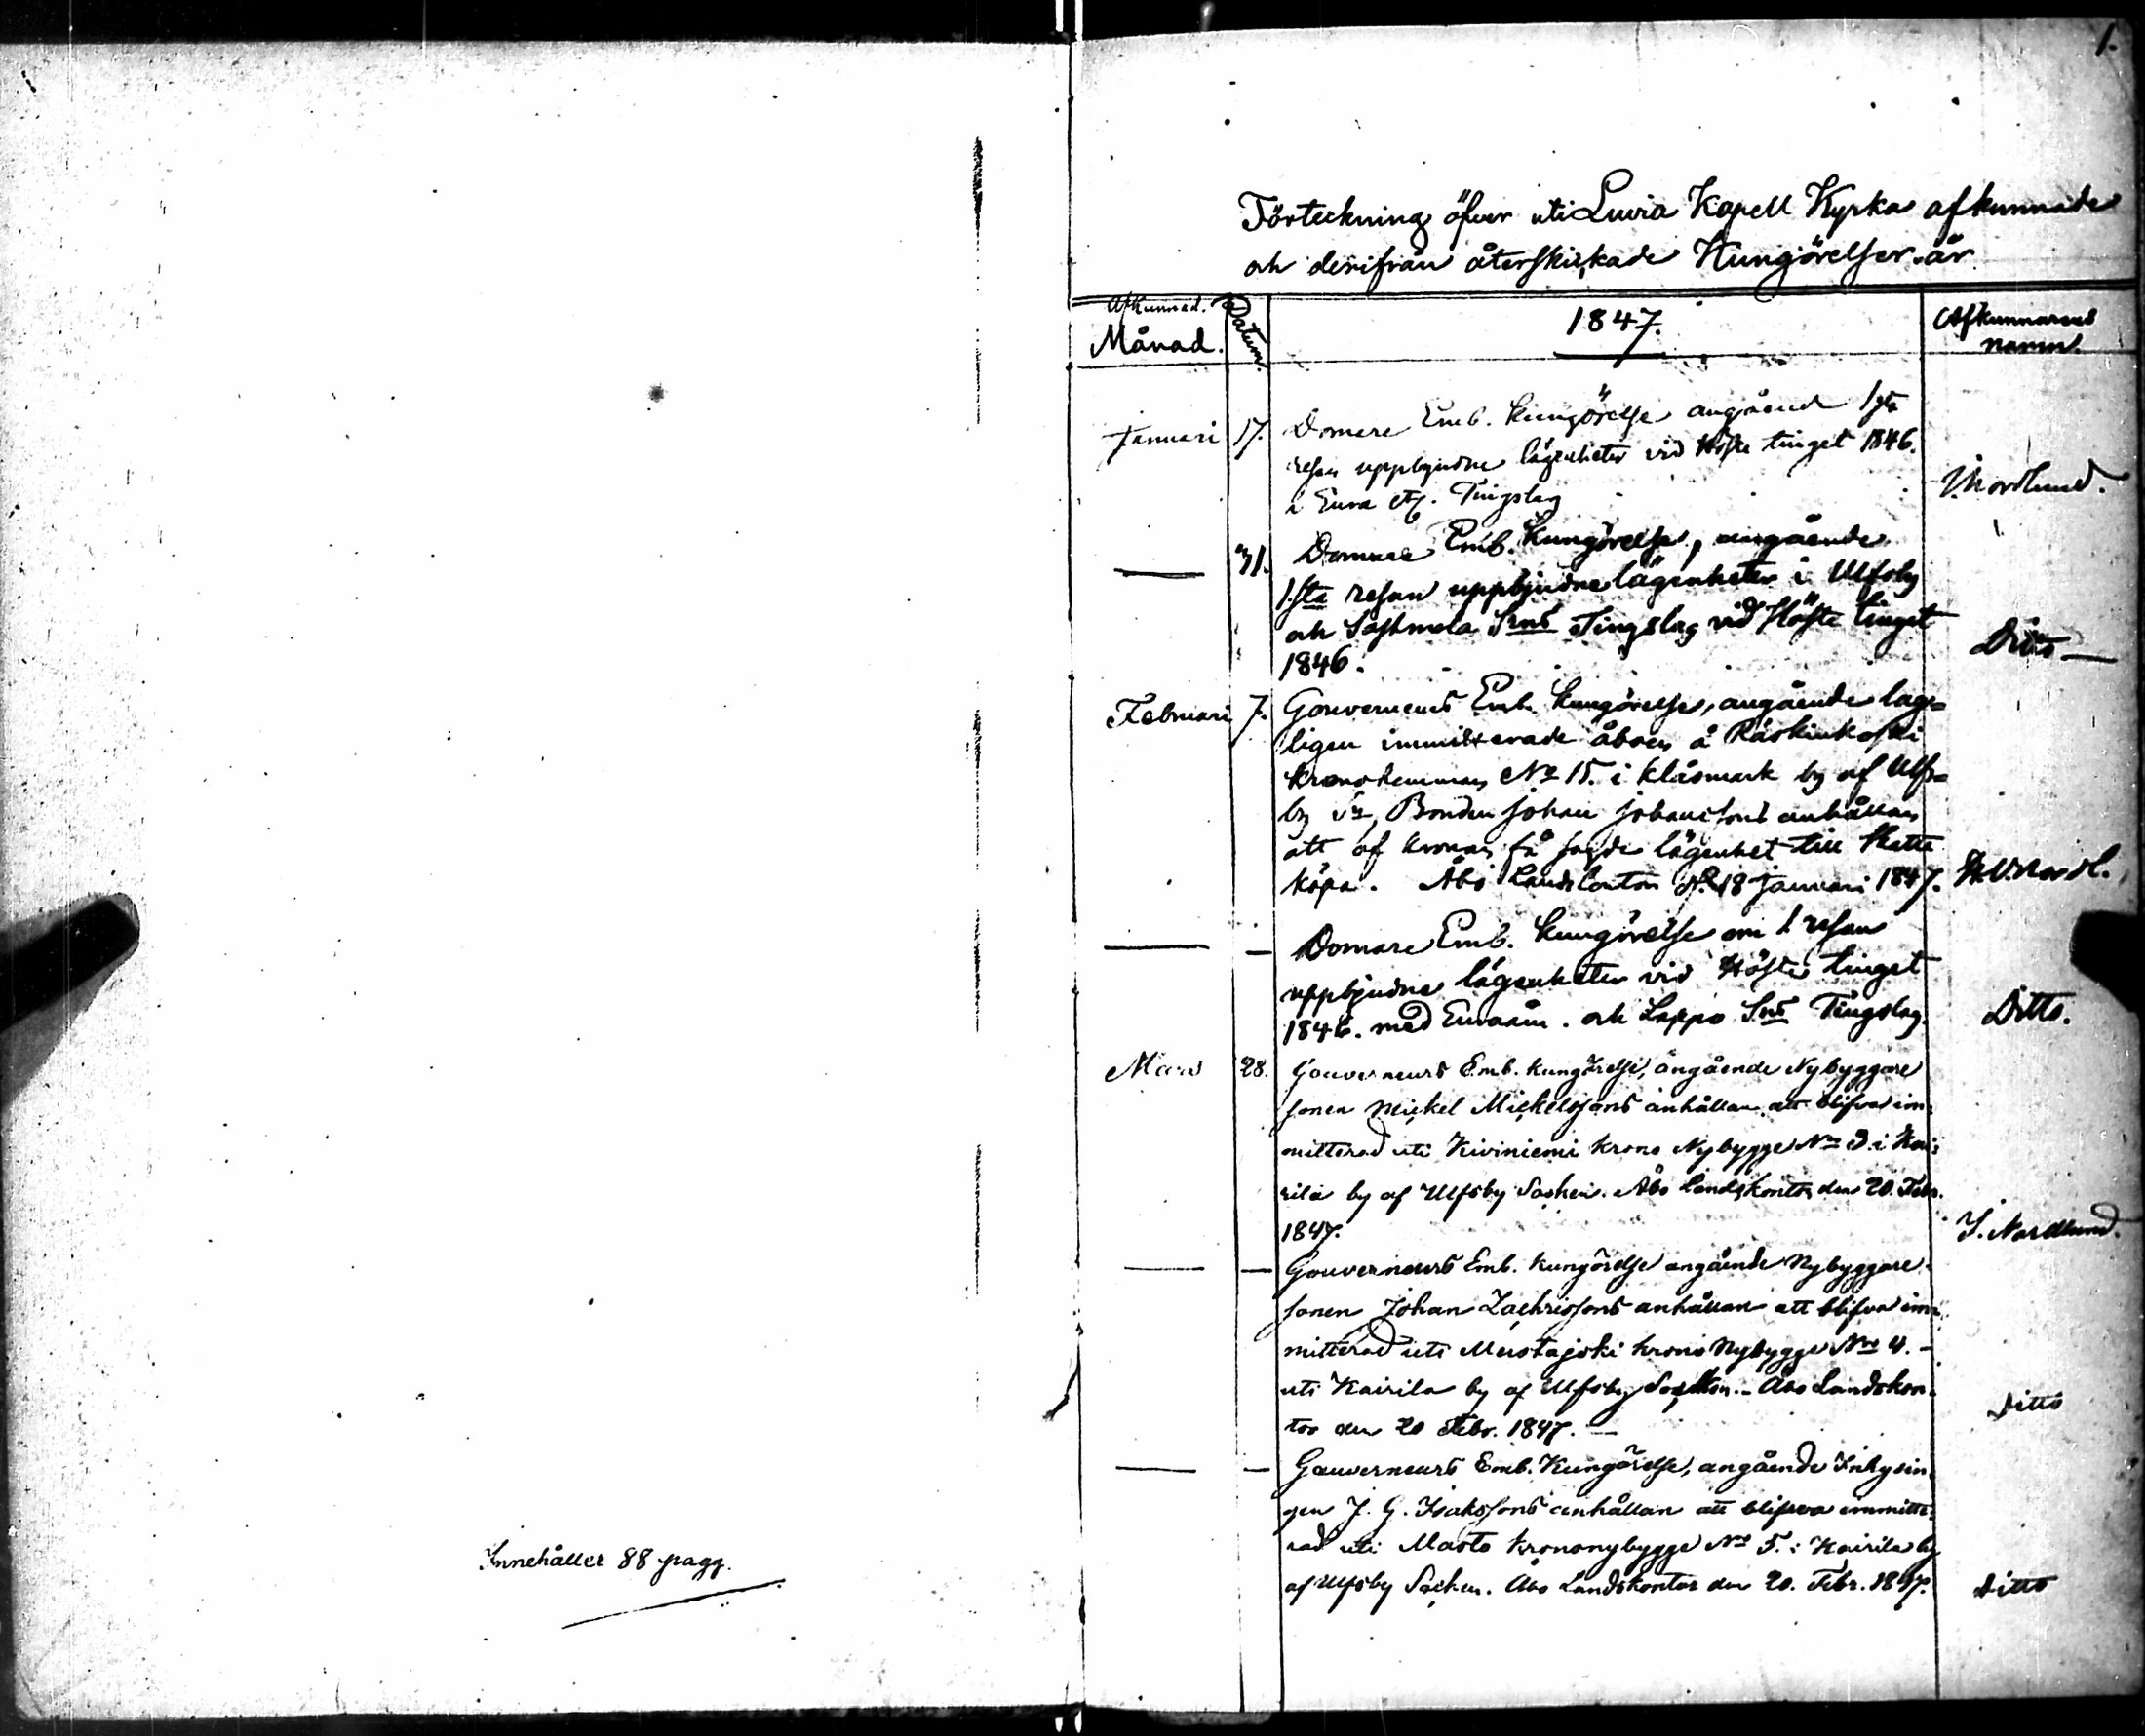 Innehåller 88 pagg.
1.
Förteckning öfver uti Luvia Kapell Kyrka afkunnade
och derifrån återskickade Kungörelser år
Afkunnad. Månad.
Datum.
1847.
Afkunnarens namn.
Januari 17. Domare Emb. Kungörelse angående 1sta
resan uppbjudne lägenheter vid Höste tinget 1846.
i Eura etc. Tingslag
Nordlund.
— 31. Domare Emb. Kungörelse, angående
1.sta resan uppbjudne lägenheter i Ulfsby
och Sastmola Tingslag vid Höste tinget
1846.
Ditto —
Februari 7. Gouverneurs Emb. Kungörelse, angående lage=
ligen immitterade åboen å
Kronohemman No 15. i Klåsmark by af Ulfs=
by Sn, Bonden Johan Johanssons anhållan
att af Kronan få sagde lägenhet till Skatte
köpa. Åbo Landskontor d. 18 Januari 1847.
Nordl.
— — Domare Emb. Kungörelse om 1 resan
uppbjudne lägenheter vid Höste tinget
1846. med och Lappo Sns Tingslag.
Ditto.
Mars 28. Gouverneurs Emb. Kungörelse, angående Nybyggare
sonen Mickel Mickelssons anhållan att blifva im=
mitterad uti Kiviniemi Krono Nybygge No 3 i Kai=
rila by af Ulfsby Socken. Åbo Landskontor den 20. Febr.
1847.
J. Nordlund.
— — Gouverneurs Emb. Kungörelse angående Nybyggare
sonen Johan Zachrissons anhållan att blifva im=
mitterad uti Mustajoki Krono Nybygge No 4. -
uti Kairila by af Ulfsby Socken. - Åbo Landskon=
tor den 20 Febr. 1847. —
Ditto
— — Gouverneurs Emb. Kungörelse, angående Inhysin=
gen J. G. Isakssons anhållan att blifva immitte=
rad uti Masto Krononybygge No 5. i Kairila by
af Ulfsby Socken. Åbo Landskontor den 20. Febr. 1847.
Ditto